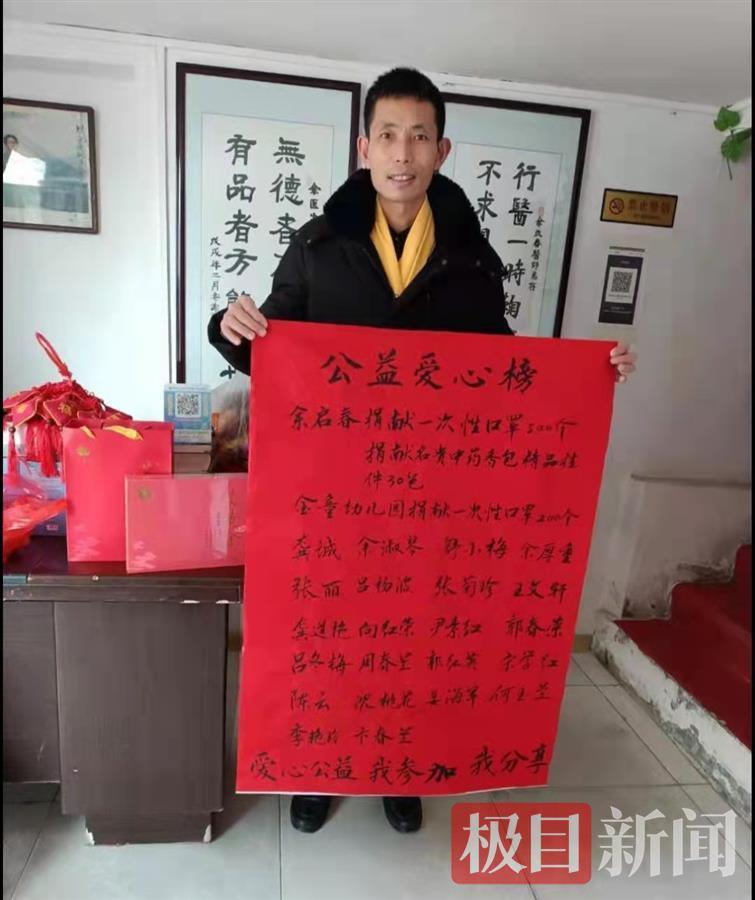 無德者
有品者方
余医
戊戌年二月
行醫一時鞠
不求
余啟春醫師惠存
禁止吸烟
公益爱心榜
余启春捐献一次性口罩500个
捐献名贵中药香包精品佳
件30包
金童幼儿园捐献一次性口罩200个
龚城 余淑琴 舒小梅 余厚重
张丽 吕杨波 张菊珍 王文轩
龚道艳 向红荣 尹素红 郭春荣
吕冬梅 周春兰 郭红英 宋学红
陈云 沈桃花 姜海军 何玉兰
李艳玲 卞春兰
爱心公益 我参加 我分享
极目新闻